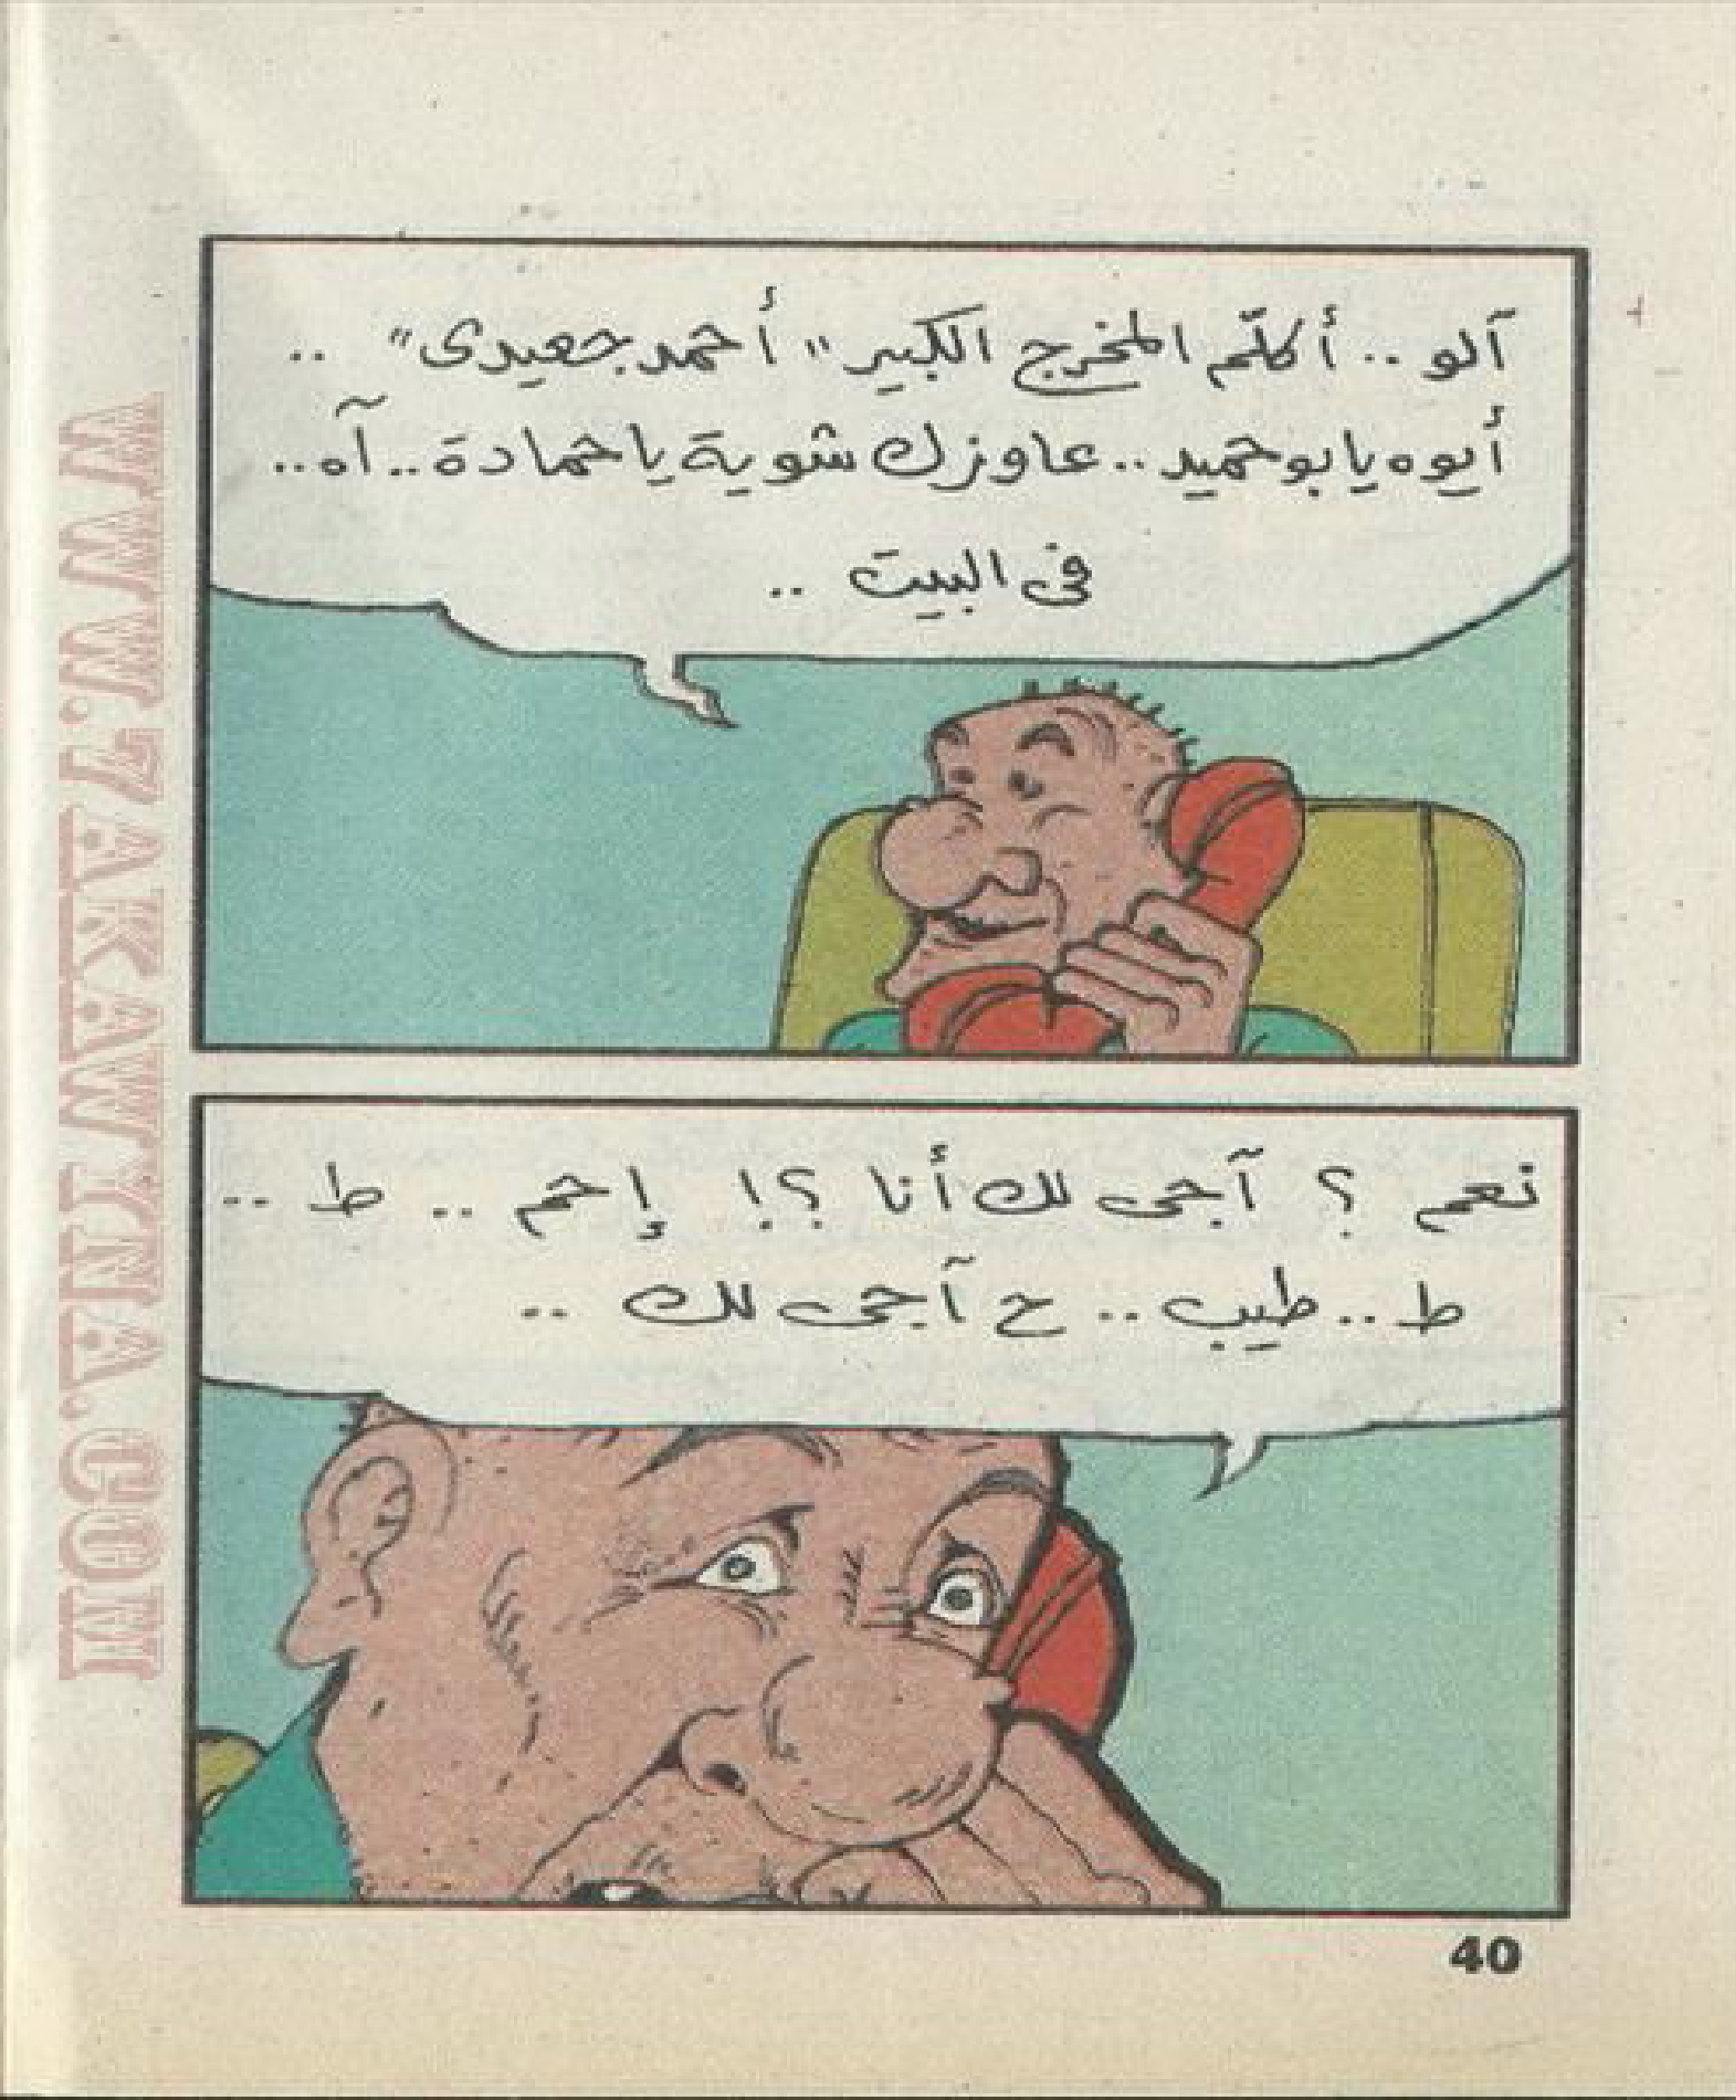 آلو .. أكلّم المخرج الكبير "أحمد جعيدى" ..
أيوه يا بو حميد .. عاوزك شوية يا حمادة .. آه ..
فى البيت ..
نعم ؟ آجى لك أنا ؟! إحم .. ط ..
ط .. طيب .. ح آجى لك ..
40
WWW.7AKAWYNA.COM